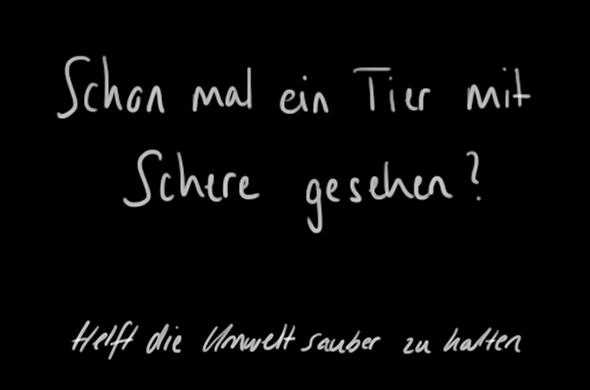 Schon mal ein Tier mit
Schere gesehen?
Helft die Umwelt sauber zu halten